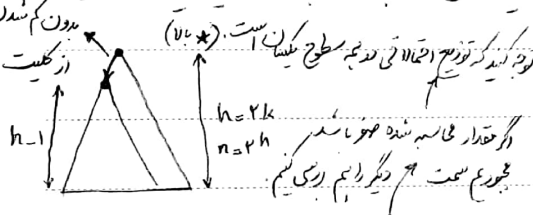 بدون کم شدن
از کلیت
توجه کنید که توزیع احتمالاتی در همه سطوح یکسان است. (★ بالا)
h-1
h=2k
n=2^h
اگر مقدار محاسبه شده صفر باشد
مجبوریم سمت دیگر را هم بررسی کنیم.